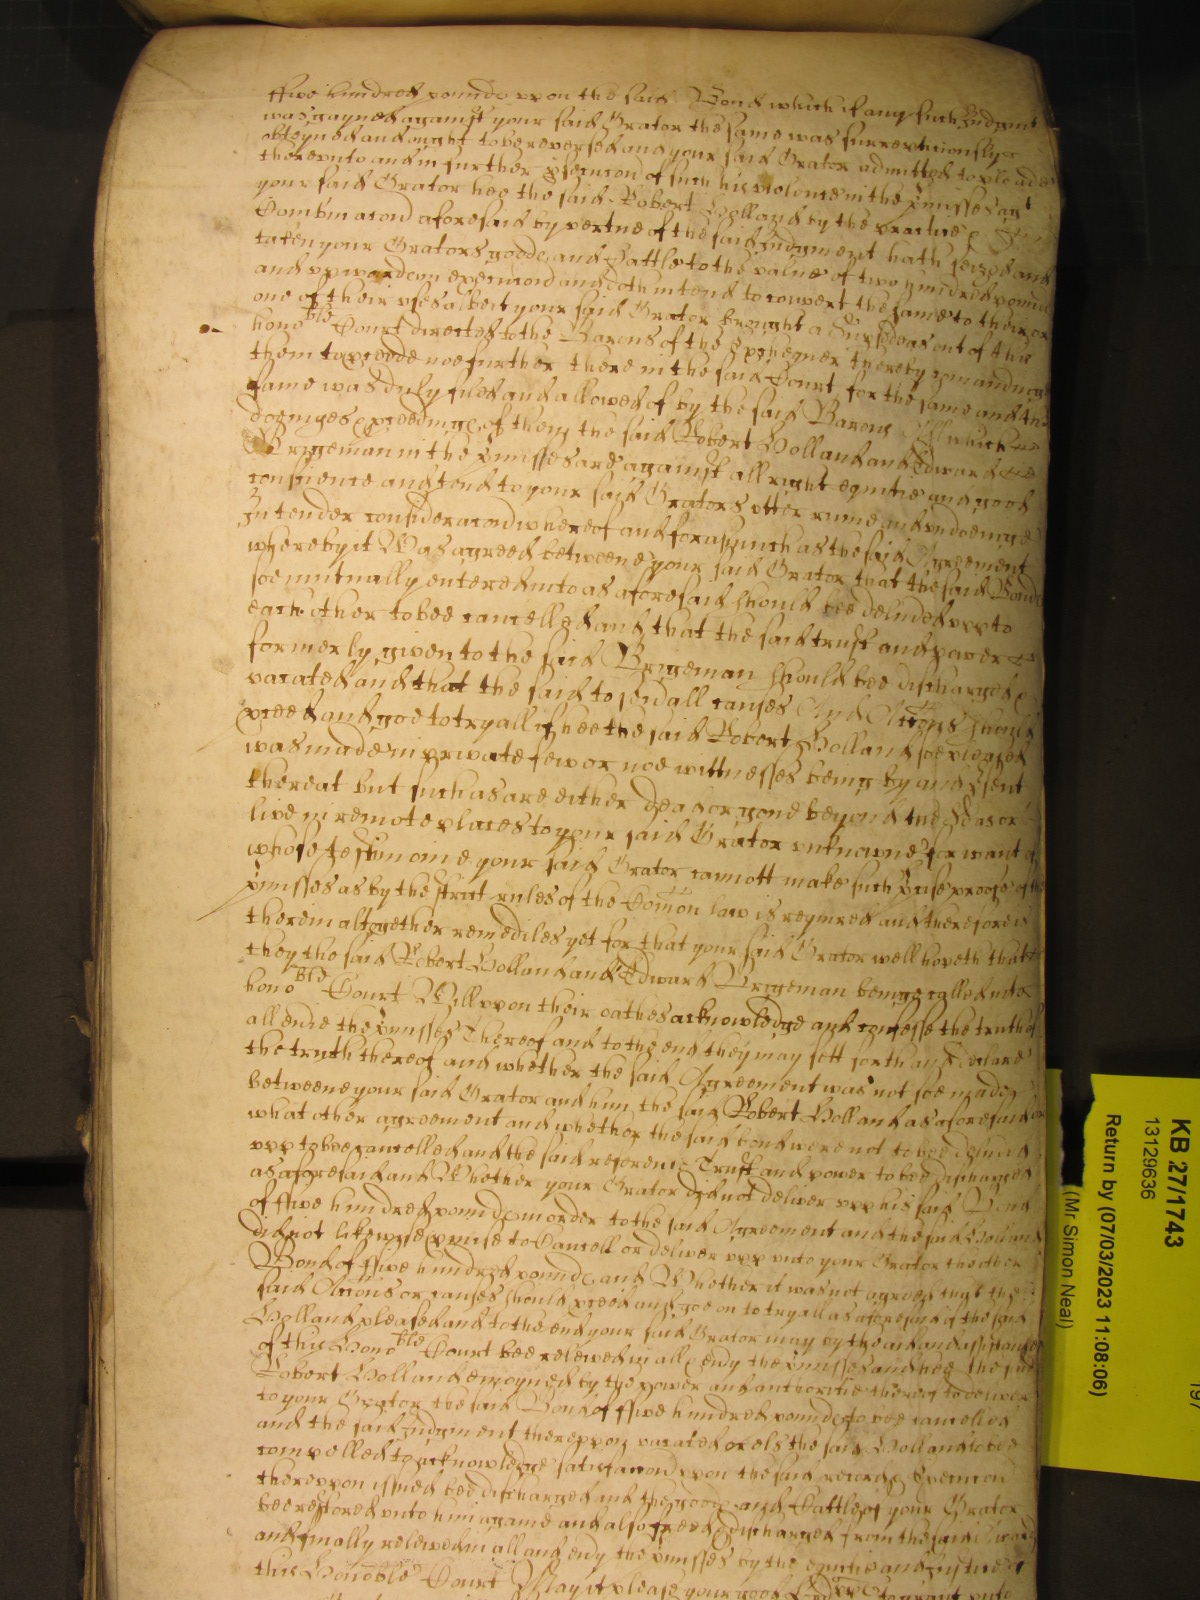 ffive hundred pounds upon the said Bond which if any such Judgmt
was gayned against your said Orator the same was surreptitiously
obteyned and ought to be reversed and your said Orator admitted to pleade
thereunto and in further psecucon of such his violence in the pmisses agt
your said Orator hee the said Robert Holland by the practice &
Combinacond aforesaid by vertue of the said Judgment hath seized and
taken your Orators goods and Cattle to the value of two hundred pounds
and upwards in execucond and doth intend to convert the same to their or
one of their uses albeit your said Orator brought a Supsedeas out of this
hono ble Court directed to the Barons of the Exchequer thereby comanding
them to pceede noe further there in the said Court for the same and the
same was duly filed and allowed of by the said Barons All which
doeings & pceedings of them the said Robert Holland and Edward
Brigeman in the pmisses are against all right equitie and good
conscience and tend to your said Orators utter ruine and undoeinge
In tender consideracond whereof and forasmuch as the said Agreement
whereby it Was agreed betweene your said Orator that the said Bonds
soe mutually entered into as aforesaid should bee delived upp to
each other to bee cancelled and that the said trust and power
formerly given to the said Brigeman should bee discharged &
vacated and that the said to said all causes And Actons should
pceed and goe to tryall if hee the said Robert Holland soe pleased
was made in private few or noe wittnesses being by and psent
thereat but such as are either dead or gone beyond the Seas or
live in remote places to your said Orator unknowne for want of
whose testimonie your said Orator cannott make such pcise proofe of the
pmisses as by the strict rules of the Comon law is required and therefore is
therein altogether remediles yet for that your said Orator well hopeth that
they the said Robert Holland and Edward Brigeman beinge called into
hono ble Court Will uppon their oathes acknowledge and confesse the truth of
all ... the pmisses Thereof and to the end they may sett forth and declare
the truth thereof and whether the said Agreement was not soe made
betweene your said Orator and him the said Robert Holland as aforesaid or
what other agreement and whether the said bond were not to bee delivred
upp to bee cancelled and the said reference Trust and power to bee discharged
as aforesaid and Whether your Orator did not deliver upp his said Bond
of ffive hundred pounds in order to the said Agreement and the said Holland
did not likewise pmise to Cancell or deliver upp unto your Orator the other
Bond of ffive hundred pounds and Whether it was not agreed that the
said Actons or causes should pceed and goe on to tryall as aforesaid if the said
Holland pleased and to the end your said Orator may by the aid and assistance
of this Hono ble Court bee releived in all & evy the pmisses and hee the said
Robert Holland enjoyned by the power and authoritie thereof to deliver
to your Orator the said Bond of ffive hundred pounds to bee cancelled
and the said Judgment thereuppon vacated or els the said Holland to bee
compelled to acknowledge satisfacond upon the said record & Execucon
thereuppon issued bee discharged and the goods and Cattles of your Orator
bee restored unto him againe and also freed & discharged from the said
and finally releived in all and evy the pmisses by the equitie and Justice of
this Honoble Court May it please your good to grant unto
KB 27/1743
13129636
Return by (07/03/2023 11:08:06)
(Mr Simon Neal)